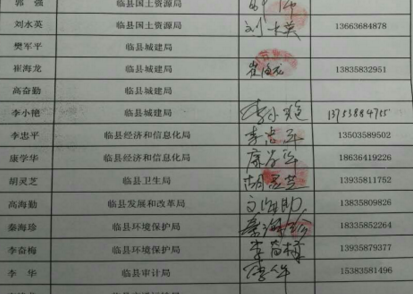 郭 强 临县国土资源局
刘水英 临县国土资源局 刘水英 13663684878
樊军平 临县城建局
崔海龙 临县城建局 崔海龙 13835832951
高奋勤 临县城建局
李小艳 临县城建局 李小艳 13753884755
李忠平 临县经济和信息化局 李忠平 13503589502
康学华 临县经济和信息化局 康学华 18636419226
胡灵芝 临县卫生局 胡灵芝 13935811752
高海勤 临县发展和改革局 13835809826
秦海珍 临县环境保护局 秦海珍 18335852264
李奋梅 临县环境保护局 李奋梅 13935879377
李 华 临县审计局 15383581496